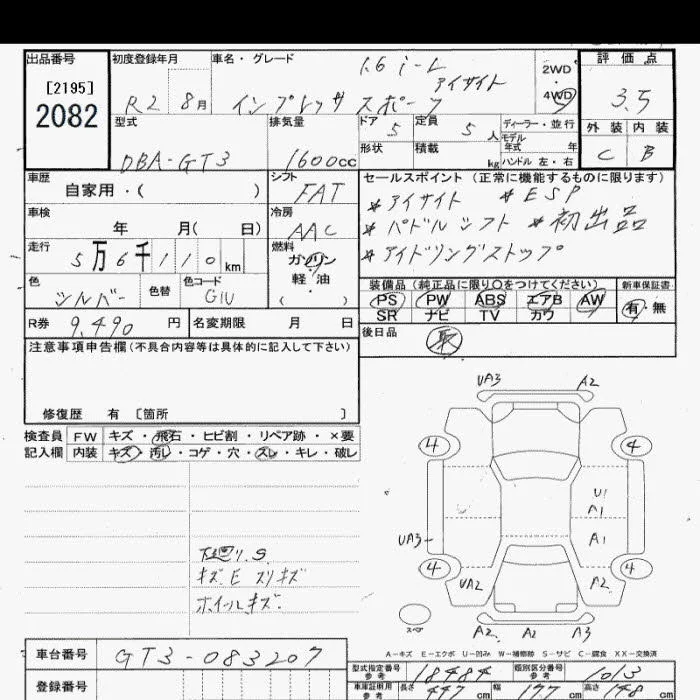 出品番号 初度登録年月 車名・グレード 1.6 i-L 評価点
[2195] アイサイト 2WD
2082 R2 8月 インプレッサ スポーツ 4WD 3.5
型式 排気量 ドア 5 定員 5人 ディーラー・並行 外装 内装
モデル年式 年
DBA-GT3 1600cc 形状 積載 kg ハンドル 左・右 C B
車歴 シフト セールスポイント (正常に機能するものに限ります)
自家用・( ) FAT *アイサイト *ESP
車検 冷房 *パドルシフト *初出品
年 月( 日) AAC *アイドリングストップ
走行 燃料
5万6千110km ガソリン
軽・油
( )
色 色替 色コード 装備品 (純正品に限り○をつけてください) 新車保証書
シルバー G1U PS PW ABS エアB AW 有・無
SR ナビ TV カワ
R券 9,490円 名変期限 月 日 後日品
取
注意事項申告欄(不具合内容等は具体的に記入して下さい)
修復歴 有 〔箇所 〕
UA3 A2
検査員 FW キズ・飛石・ヒビ割・リペア跡・×要
記入欄 内装 キズ・汚レ・コゲ・穴・スレ・キレ・破レ
4 4
U1
A1
UA3 A1
下廻り.S
4 4
キズE スリキズ
UA2 A2
ホイールキズ
スペア
A2 A2 A3
A-キズ E-エクボ U-凹み W-補修跡 S-サビ C-腐食 XX-交換済
車台番号 GT3-083207
型式指定番号 参考 18484 類別区分番号 参考 1013
登録番号 車庫証明用 参考 長さ 447cm 幅 177cm 高さ 148cm